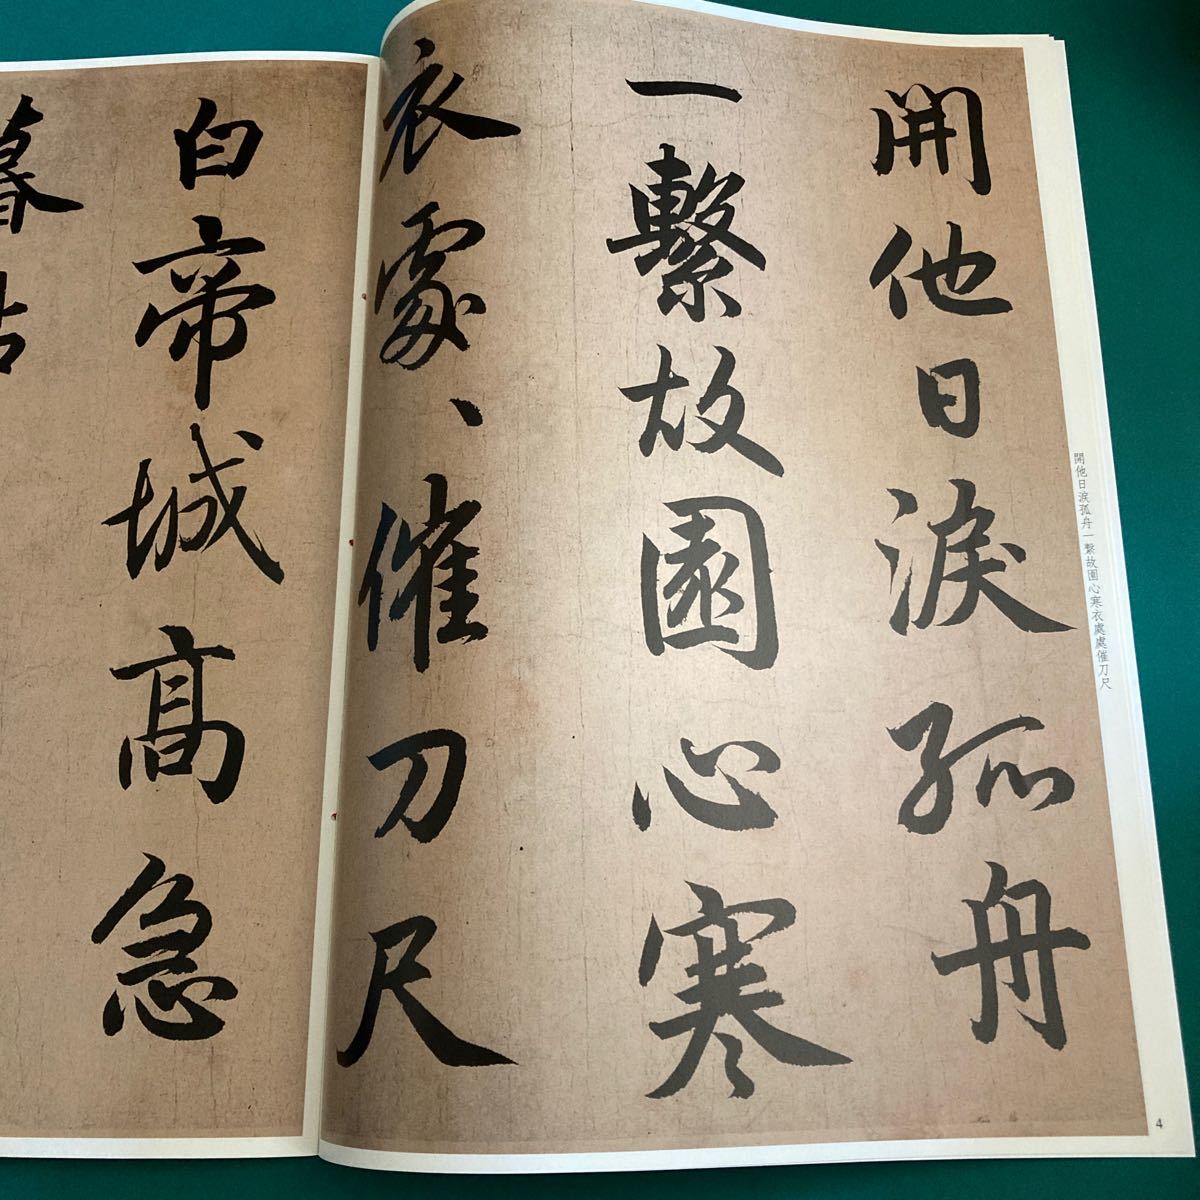 開他日淚孤舟
一繫故園心寒
衣處、催刀尺
開他日淚孤舟一繫故園心寒衣處處催刀尺
4
白帝城高急
暮砧